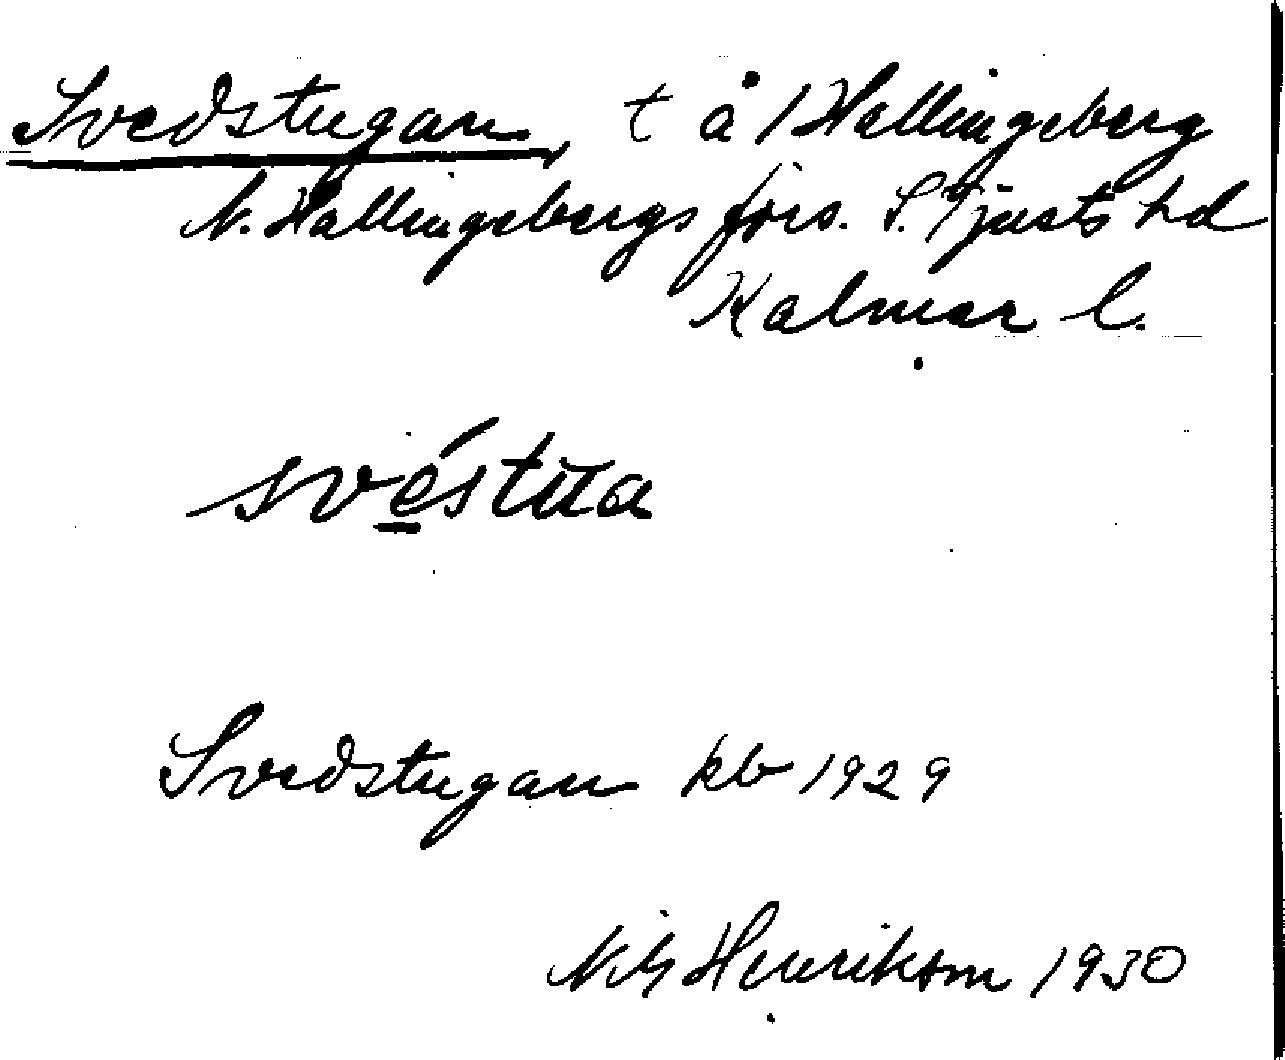 Svedstugan, t å 1 Hallingeberg
N. Hallingebergs förs. S. Tjusts hd
Kalmar l.
svéstua
Svedstugan kb 1929
Henrikson 1930